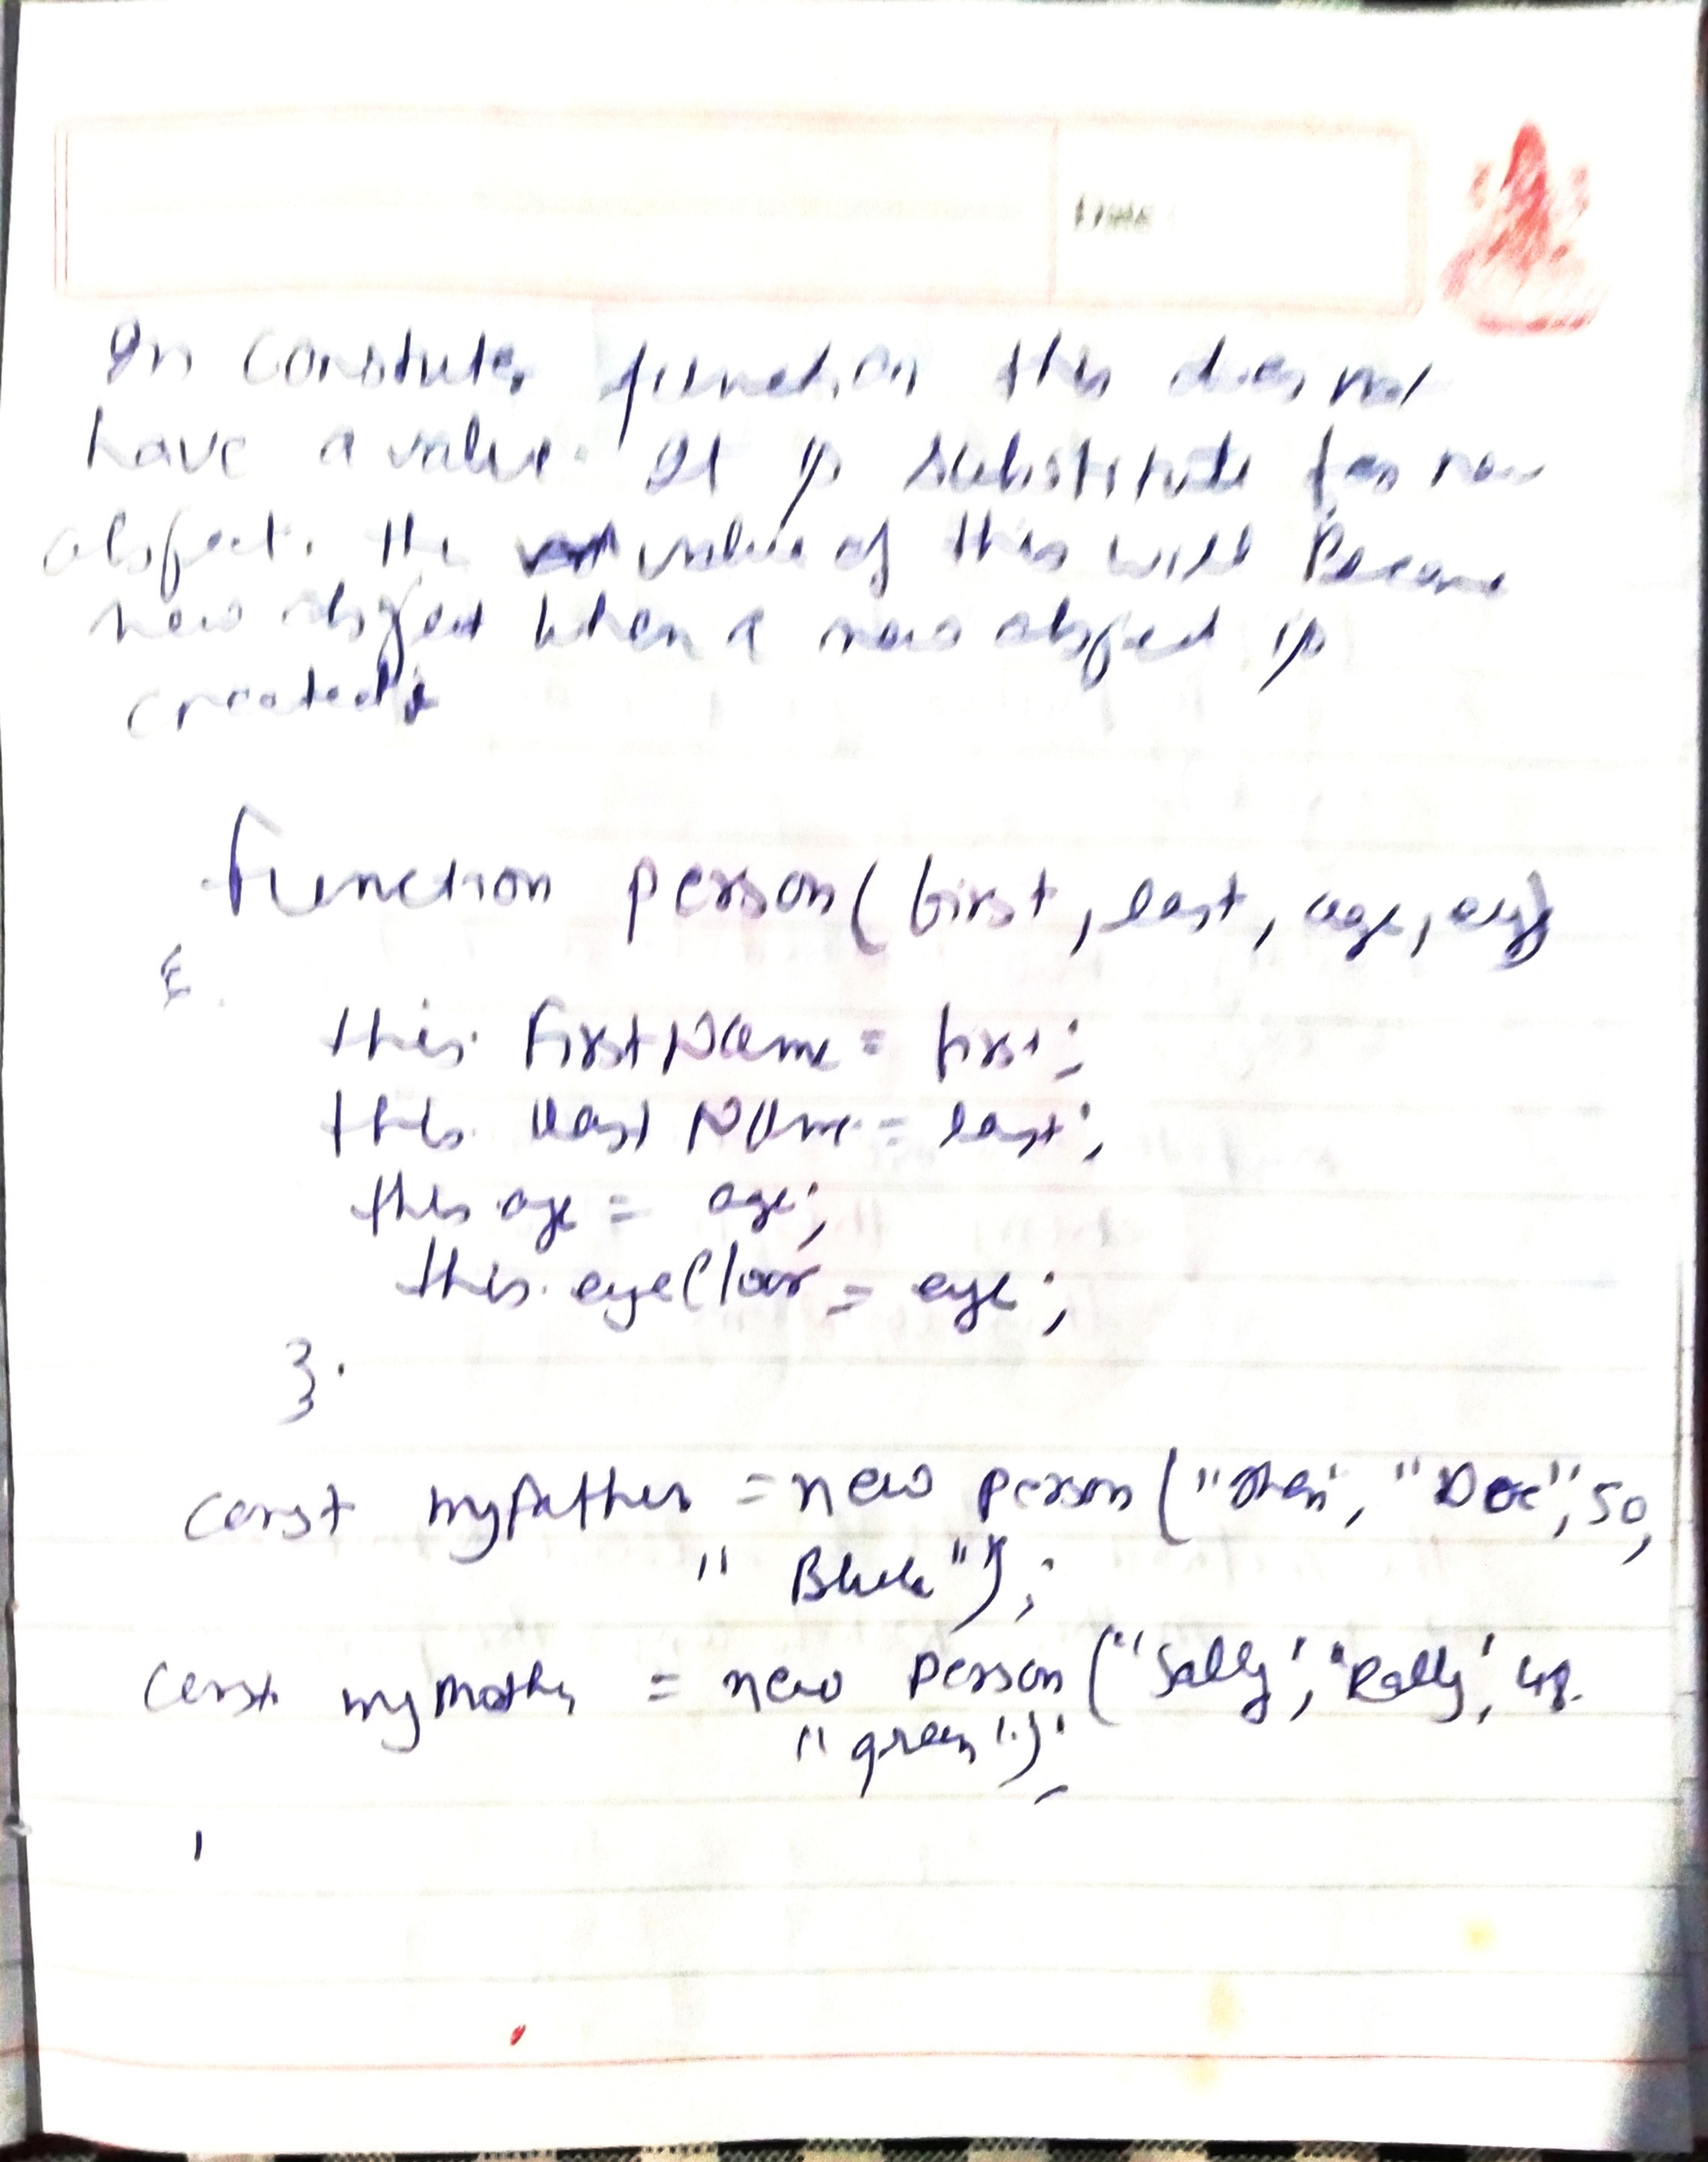 DATE
In constuter function this does not
have a value. It is substitute for new
object. the value of this will Become
new object when a new object is
created
function person(first, last, age, eye)
{
this. firstName = first;
this. Last Name = last;
this.age = age;
this.eyeCloor = eye;
}.
const myfather = new person("", "Doe", 50,
"Blue");
const. my mother = new person("Sally", "Rally", 48.
"green");